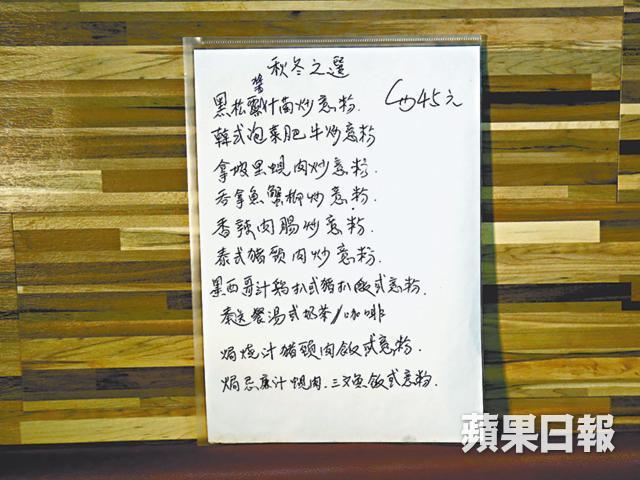 秋冬之選
黑松露汁菌炒意粉. 45元
韓式泡菜肥牛炒意粉
拿坡里蜆肉炒意粉.
吞拿魚蟹柳炒意粉.
香辣肉腸炒意粉.
泰式豬頸肉炒意粉.
墨西哥汁鷄扒或豬扒飯或意粉.
奉送餐湯或奶茶/咖啡
焗燒汁豬頸肉飯或意粉.
焗忌廉汁蜆肉.三文魚飯或意粉.
蘋果日報